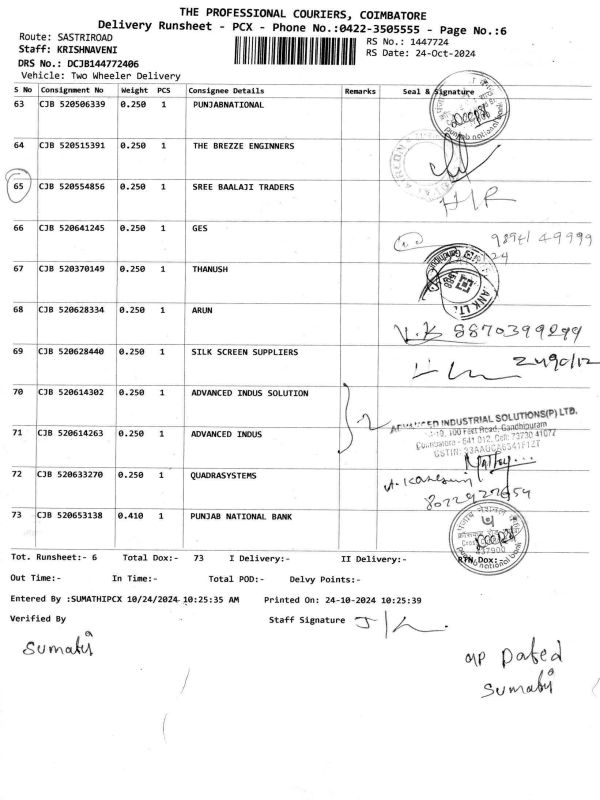 THE PROFESSIONAL COURIERS, COIMBATORE
Delivery Runsheet - PCX - Phone No.:0422-3505555 - Page No.:6
Route: SASTRIROAD
RS No.: 1447724
Staff: KRISHNAVENI
RS Date: 24-Oct-2024
DRS No.: DCJB144772406
Vehicle: Two Wheeler Delivery
S No Consignment No Weight PCS Consignee Details Remarks Seal & Signature
63 CJB 520506339 0.250 1 PUNJABNATIONAL
punjab national bank
64 CJB 520515391 0.250 1 THE BREZZE ENGINNERS
65 CJB 520554856 0.250 1 SREE BAALAJI TRADERS
66 CJB 520641245 0.250 1 GES
67 CJB 520370149 0.250 1 THANUSH
BANK LTD.
68 CJB 520628334 0.250 1 ARUN
V.K 8870399299
69 CJB 520628440 0.250 1 SILK SCREEN SUPPLIERS
70 CJB 520614302 0.250 1 ADVANCED INDUS SOLUTION
ADVANCED INDUSTRIAL SOLUTIONS(P) LTD.
100 Feet Road, Gandhipuram
71 CJB 520614263 0.250 1 ADVANCED INDUS
Coimbatore - 641 012. Cell: 73730 41077
72 CJB 520633270 0.250 1 QUADRASYSTEMS
73 CJB 520653138 0.410 1 PUNJAB NATIONAL BANK
punjab national bank
Tot. Runsheet:- 6 Total Dox:- 73 I Delivery:- II Delivery:- RTN Dox:-
Out Time:- In Time:- Total POD:- Delvy Points:-
Entered By :SUMATHIPCX 10/24/2024 10:25:35 AM Printed On: 24-10-2024 10:25:39
Verified By Staff Signature
Sumathi
up Dated
Sumathi